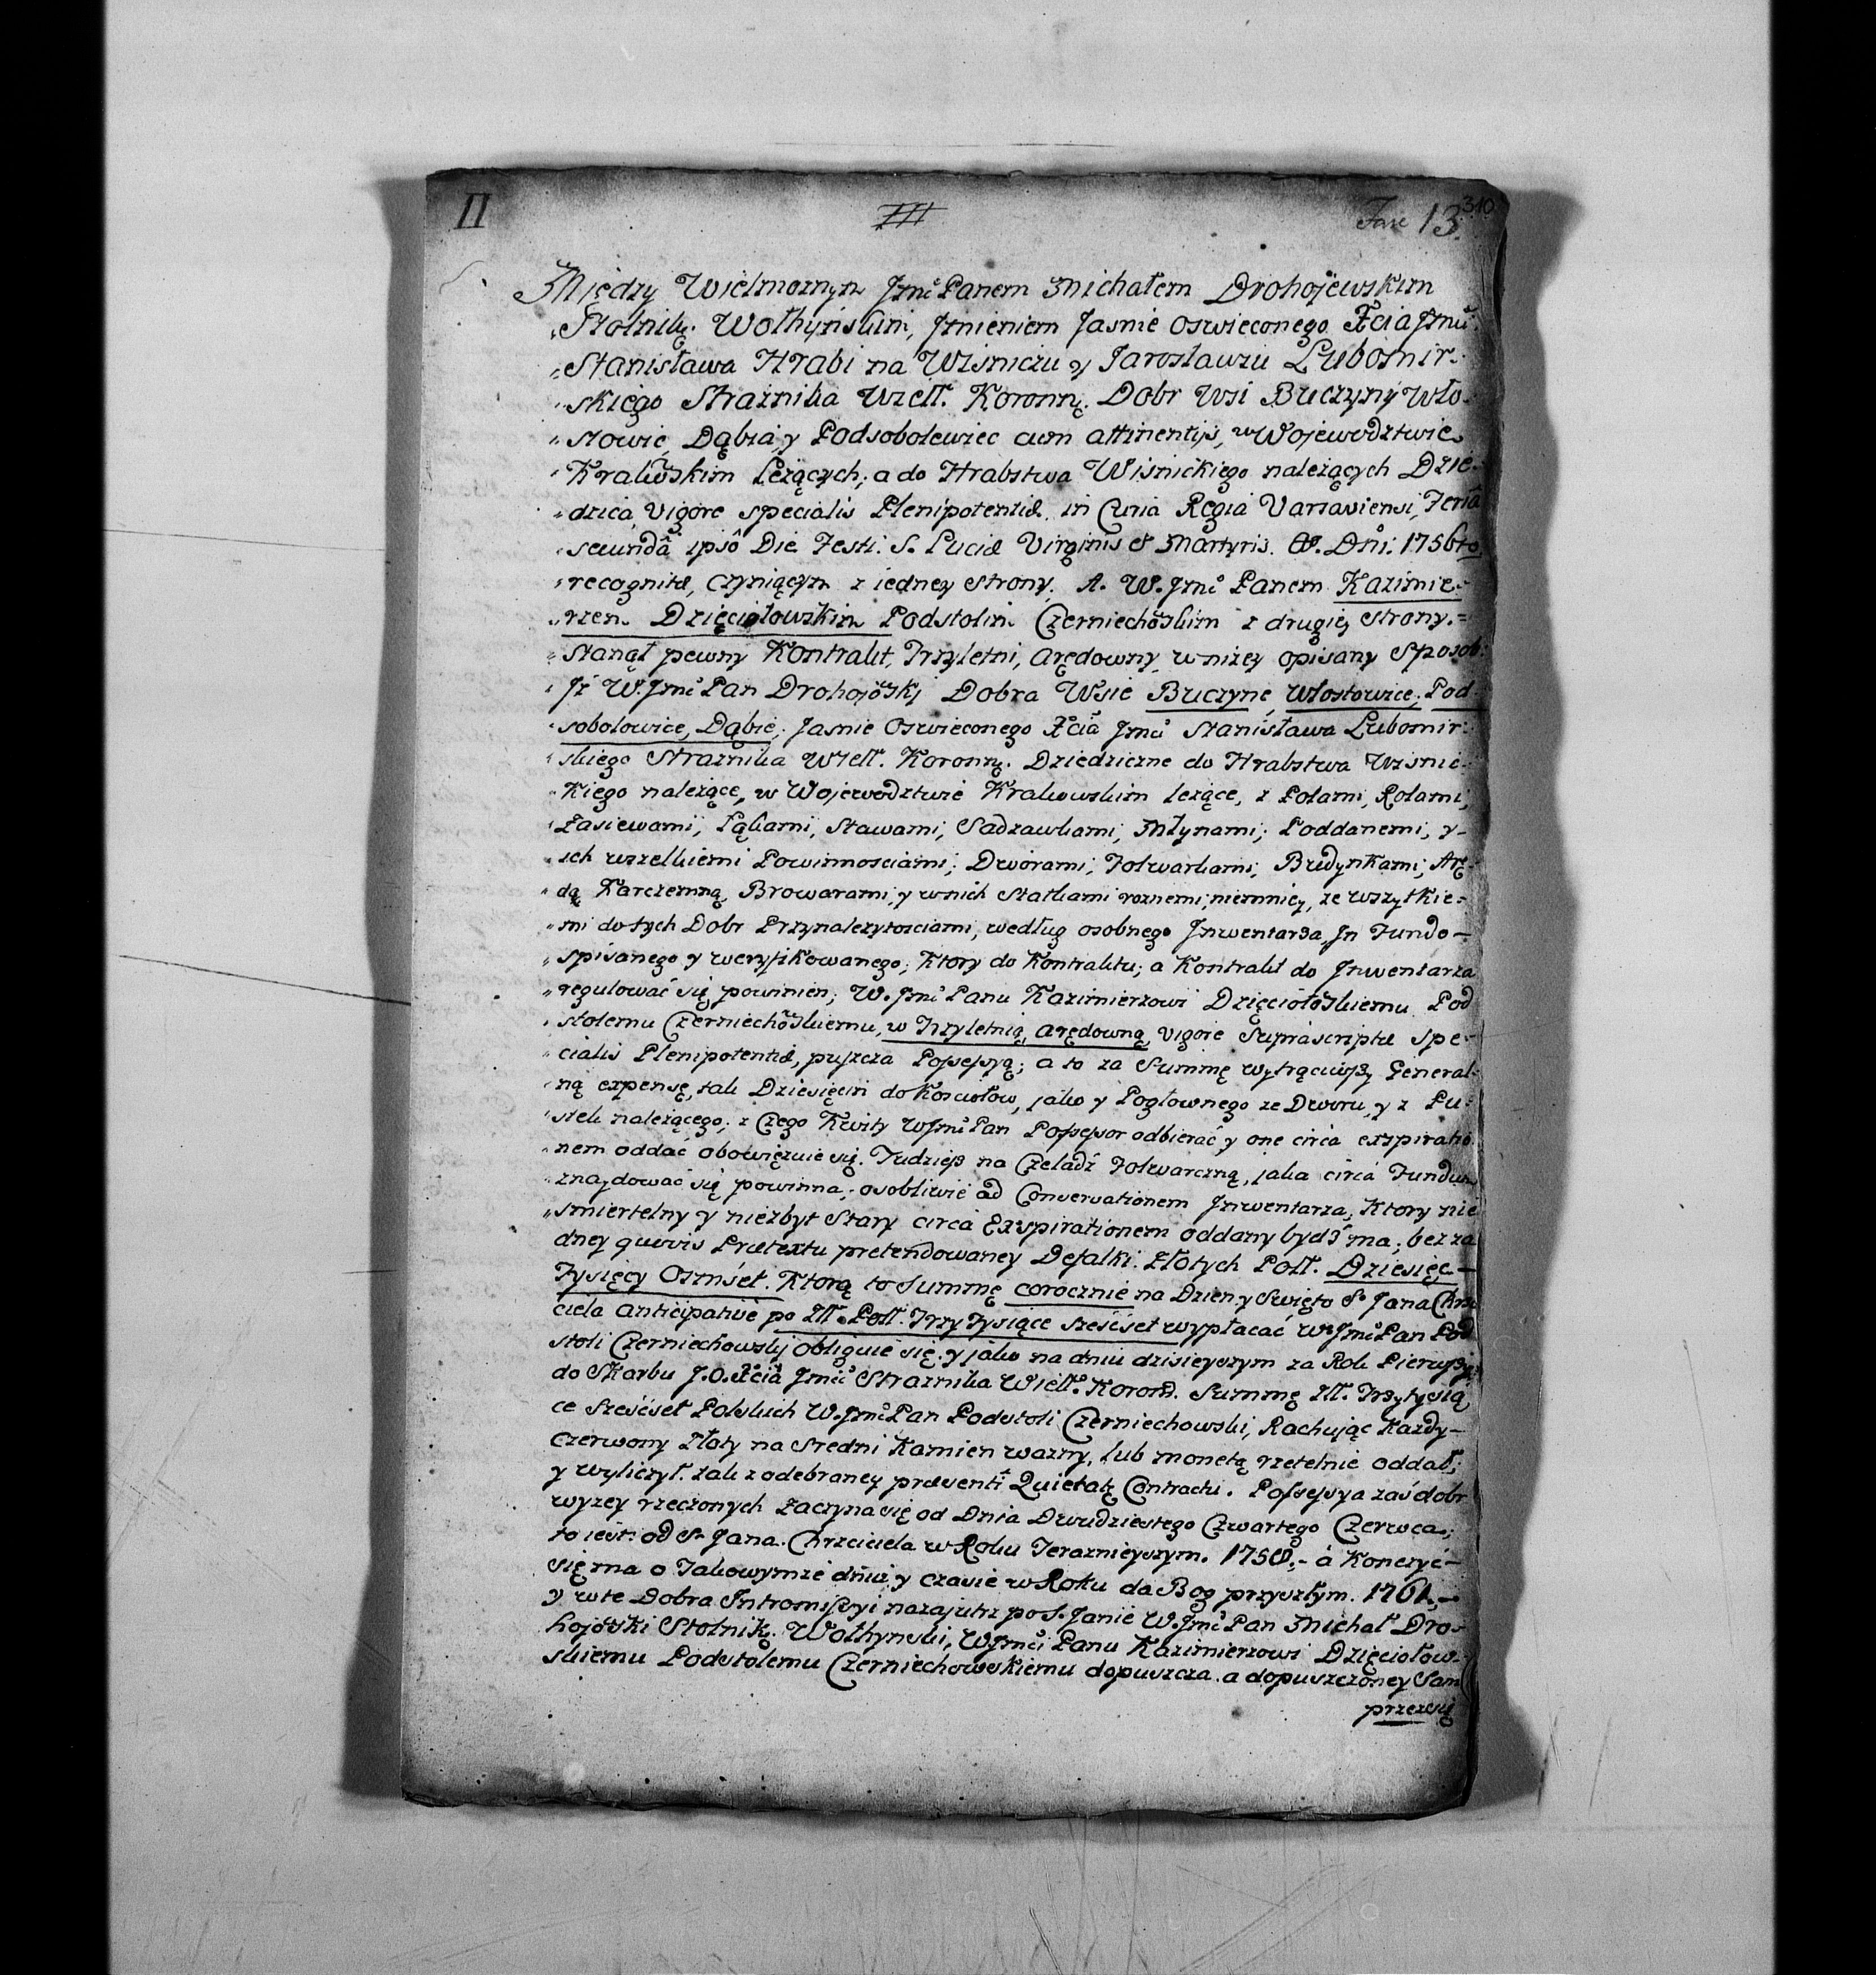 II
III
Fasc 13.
310
Między Wielmożnym Jmć Panem Michałem Drohojewskim
Stolnikę. Wołhyńskim, Jmieniem Jasnie Oswieconego Xcia Jmci
Stanisława Hrabi na Wisniczu y Jarosławiu Lubomir-
skiego Strażnika Wiell. Koronnę. Dobr Wsi Buczyny Wło-
stowic, Dąbia, y Podsobolewiec cum attinentijs, w Wojewodztwie
Krakowskim leżących; a do Hrabstwa Wisnickiego należących Dzie-
dzica, vigore specialis Plenipotentiæ in Curia Regia Varsaviensi, Feria
secundâ ipsô Die Festi S. Luciæ Virginis et Martyris. A. Dni. 1756to
recognitæ, czyniącym z iedney strony, A. W. Jmć Panem Kazimie-
rzem Dzięciołowskim Podstolim Czerniechowskim z drugiey strony.=
Stanął pewny Kontrakt, Trzyletni, Arędowny w niżey opisany Sposob:
Jż W. Jmć Pan Drohojowskj Dobra Wsie Buczyne, Włostowice, Pod-
sobolowice, Dąbie, Jasnie Oswieconego Xcia Jmci Stanisława Lubomir-
skiego Strażnika Wiell. Koronnę. Dziedziczne do Hrabstwa Wisnic-
kiego należące, w Wojewodztwie Krakowskim leżące, z Polami, Rolami,
Zasiewami, Łąkami, Stawami, Sadzawkami, Młynami; Poddanemi, y
ich wszelkiemi Powinnosciami; Dworami, Folwarkami; Budynkami, Arę-
dą Karczemną, Browarami, y wnich Statkami roznemi; niemniey, ze wszytkie-
mi do tych Dobr Przynalezytosciami, według osobnego Jnwentarza, Jn Fundo
spisanego y weryfikowanego; Ktory do Kontraktu; a Kontrakt do Jnwentarza
regulować się powinien; W. Jmć Panu Kazimierzowi Dzięciołowskiemu Pod
stolemu Czerniechowskiemu, w Trzyletnią, Arędowną, vigore Supráscriptæ Spe-
cialis Plenipotentiæ, puszcza Possessyą; a to za Summę wytrąciwszy General-
ną expensę, tak Dziesięcin do Kosciołow, jako y Pogłownego ze Dworu, y z Pu-
stek należącego; z Czego Kwity WJmć Pan Possessor odbierać y one circa exspiratio
nem oddać obowięzuie się. Tudziesz na Czeladź Folwarczną, jaka circa Fundum
znajdować się powinna; osobliwie ad Conservationem Jnwentarza, Ktory nie
smiertelny y niezbyt Stary circa Exspirationem oddany bydź ma; bez za
dney quovis Prætextu pretendowaney Defalki. Złotych Poll. Dziesięc
Tysięcy Osmset. Ktorą to Summę corocznie na Dzien y Swięto S. Jana Chrz
ciela anticipative po Złł. Poll. Trzy Tysiące szescset wypłacać W. Jmć Pan Pod
stoli Czerniechowskj obliguie się. y jako na dniu dzisieyszym za Rok Pierwszy
do Skarbu J.O. Xcia Jmci Strażnika Wiell. Koron. Summę Złł. Trzytysią
ce Szescset Polskich W. Jmć Pan Podstoli Czerniechowski, Rachując Każdy
Czerwony Złoty na Sredni Kamien ważny, lub monetą rzetelnie oddał,
y wyliczył. zak z odebraney præsenti Quietatę Contractu. Possessya zaś dobr
wyzey rzeczonych zaczyna się od Dnia Dwudziestego Czwartego Czerwca;
to iest: od S. Jana Chrzciciela w Roku Teraznieyszym. 1758.- á Konczyć
się ma o Takowymże dniu y czasie w Roku da Bog przyszłym. 1761.-
y w te Dobra Jntromissyi nazajutrz po S. Janie W. Jmć Pan Michał Dro-
hojowski Stolnikę. Wołhynski, WJmci Panu Kazimierzowi Dzięciołow-
skiemu Podstolemu Czerniechowskiemu dopuszcza. a dopuszczoney Sam
przezsię